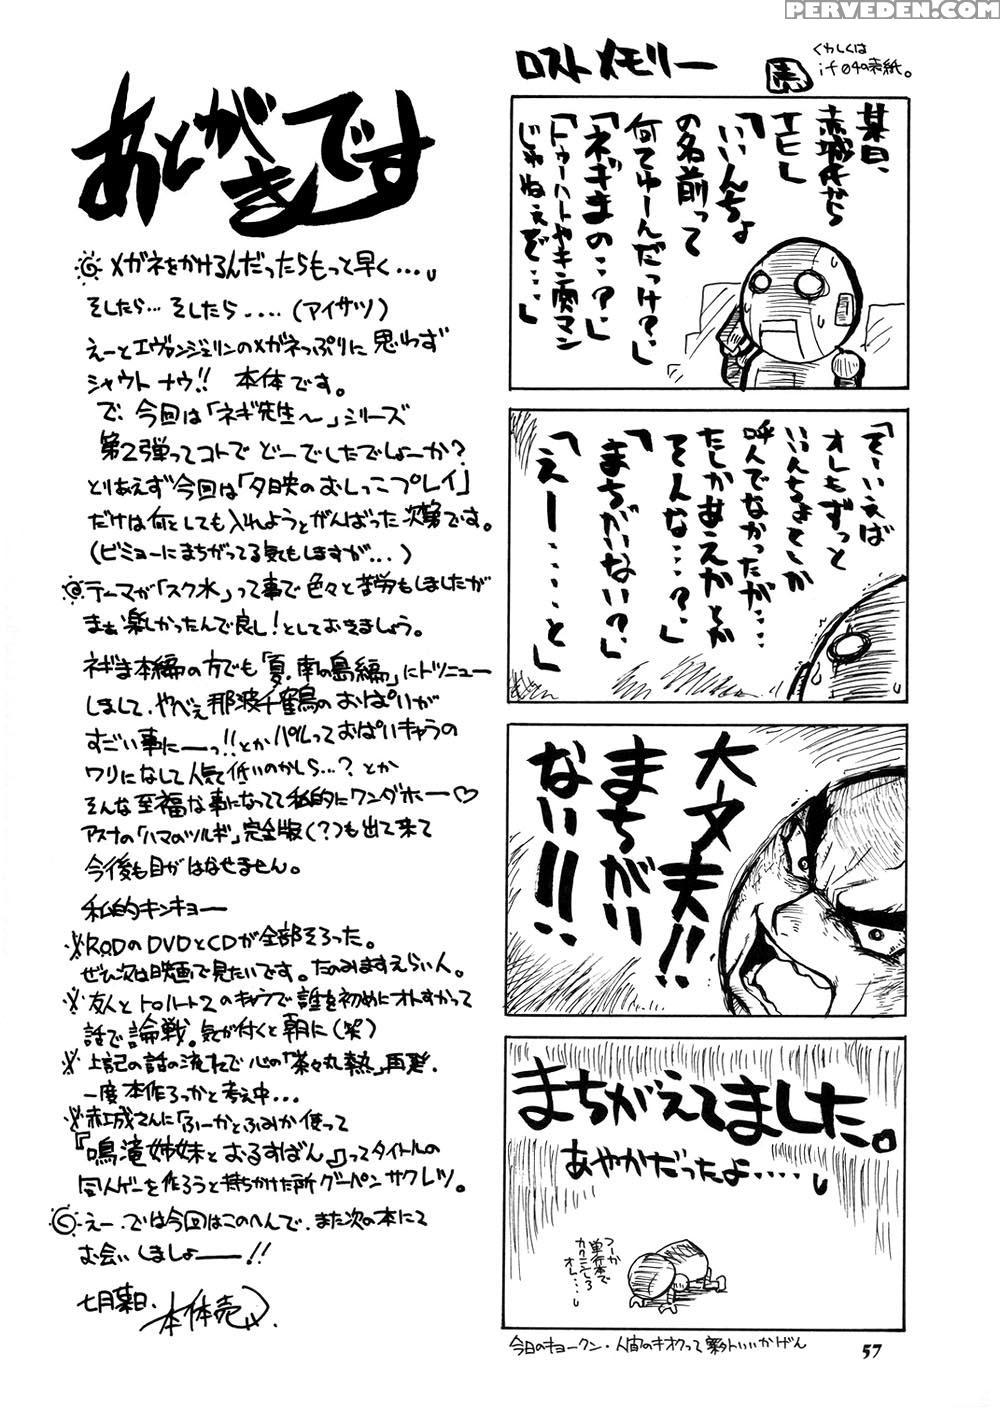 PERVEDEN.COM
あとがきです
メガネをかけるんだったらもっと早く…。
そしたら…そしたら....(アイサツ)
えーとエヴァンジェリンのメガネっぷりに思わず
シャウトナウ!! 本体です。
で、今回は「ネギ先生〜」シリーズ
第2弾ってコトでどーでしたでしょーか?
とりあえず今回は「夕映のおしっこプレイ」
だけは何としても入れようとがんばった次第です。
(ビミョーにまちがってる気もしますが...)
テーマが「スク水」って事で色々と苦労もしましたが
まぁ楽しかったんで良し!としておきましょう。
ネギま本編の方でも「夏、南の島編」にトツニュー
しまして、やべぇ那波千鶴のおぱいが
すごい事にーーっ!!とかパルっておぱいキャラの
ワリになして人気低いのかしら...?とか
そんな至福な事になってて私的にワンダホー♡
アスナの「ハマのツルギ」完全版(?)も出て来て
今後も目がはなせません。
私的キンキョー
RODのDVDとCDが全部そろった。
ぜひ次は映画で見たいです。たのみますえらい人。
友人とトゥハート2のキャラで誰を初めにオトすかって
話で論戦。気が付くと朝に(笑)
上記の話の流れで心の「茶々丸熱」再発。
一度本作ろっかと考え中...
赤城さんに「ふーかとふみか使って
『鳴滝姉妹とおるすばん』ってタイトルの
同人ゲーを作ろうと持ちかけた所グーパンサクレツ。
えー、では今回はこのへんで、また次の本にて
お会いしましょーー!!
七月某日、本体売
ロストメモリー
くわしくは
if04の表紙。
某日、
赤城氏から
TELし
「いいんちょ
の名前って
何てゆーんだっけ?」
「ネギまの..?」
「トゥーハートやキン肉マン
じゃねぇぞ...」
「そーいえば
オレもずっと
いいんちょてしか
呼んでなかったが....
たしかあえかとか
そんな...?」
「まちがいない?」
「えー....と」
大丈夫!!
まちがい
ない!!
まちがえてました。
あやかだったよ.....。
つーか
単行本で
カクニンしろ
オレ...。
今日のキョークン・人間のキオクって案外いいかげん
57